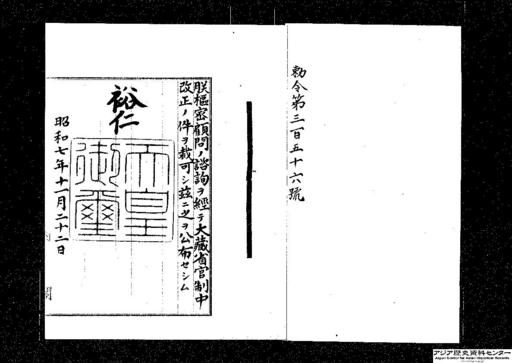 勅令第三百五十六號
朕樞密顧問ノ諮詢ヲ經テ大藏省官制中
改正ノ件ヲ裁可シ茲ニ之ヲ公布セシム
裕仁
天皇
御璽
昭和七年十一月二十二日
アジア歴史資料センター
Japan Center for Asian Historical Records